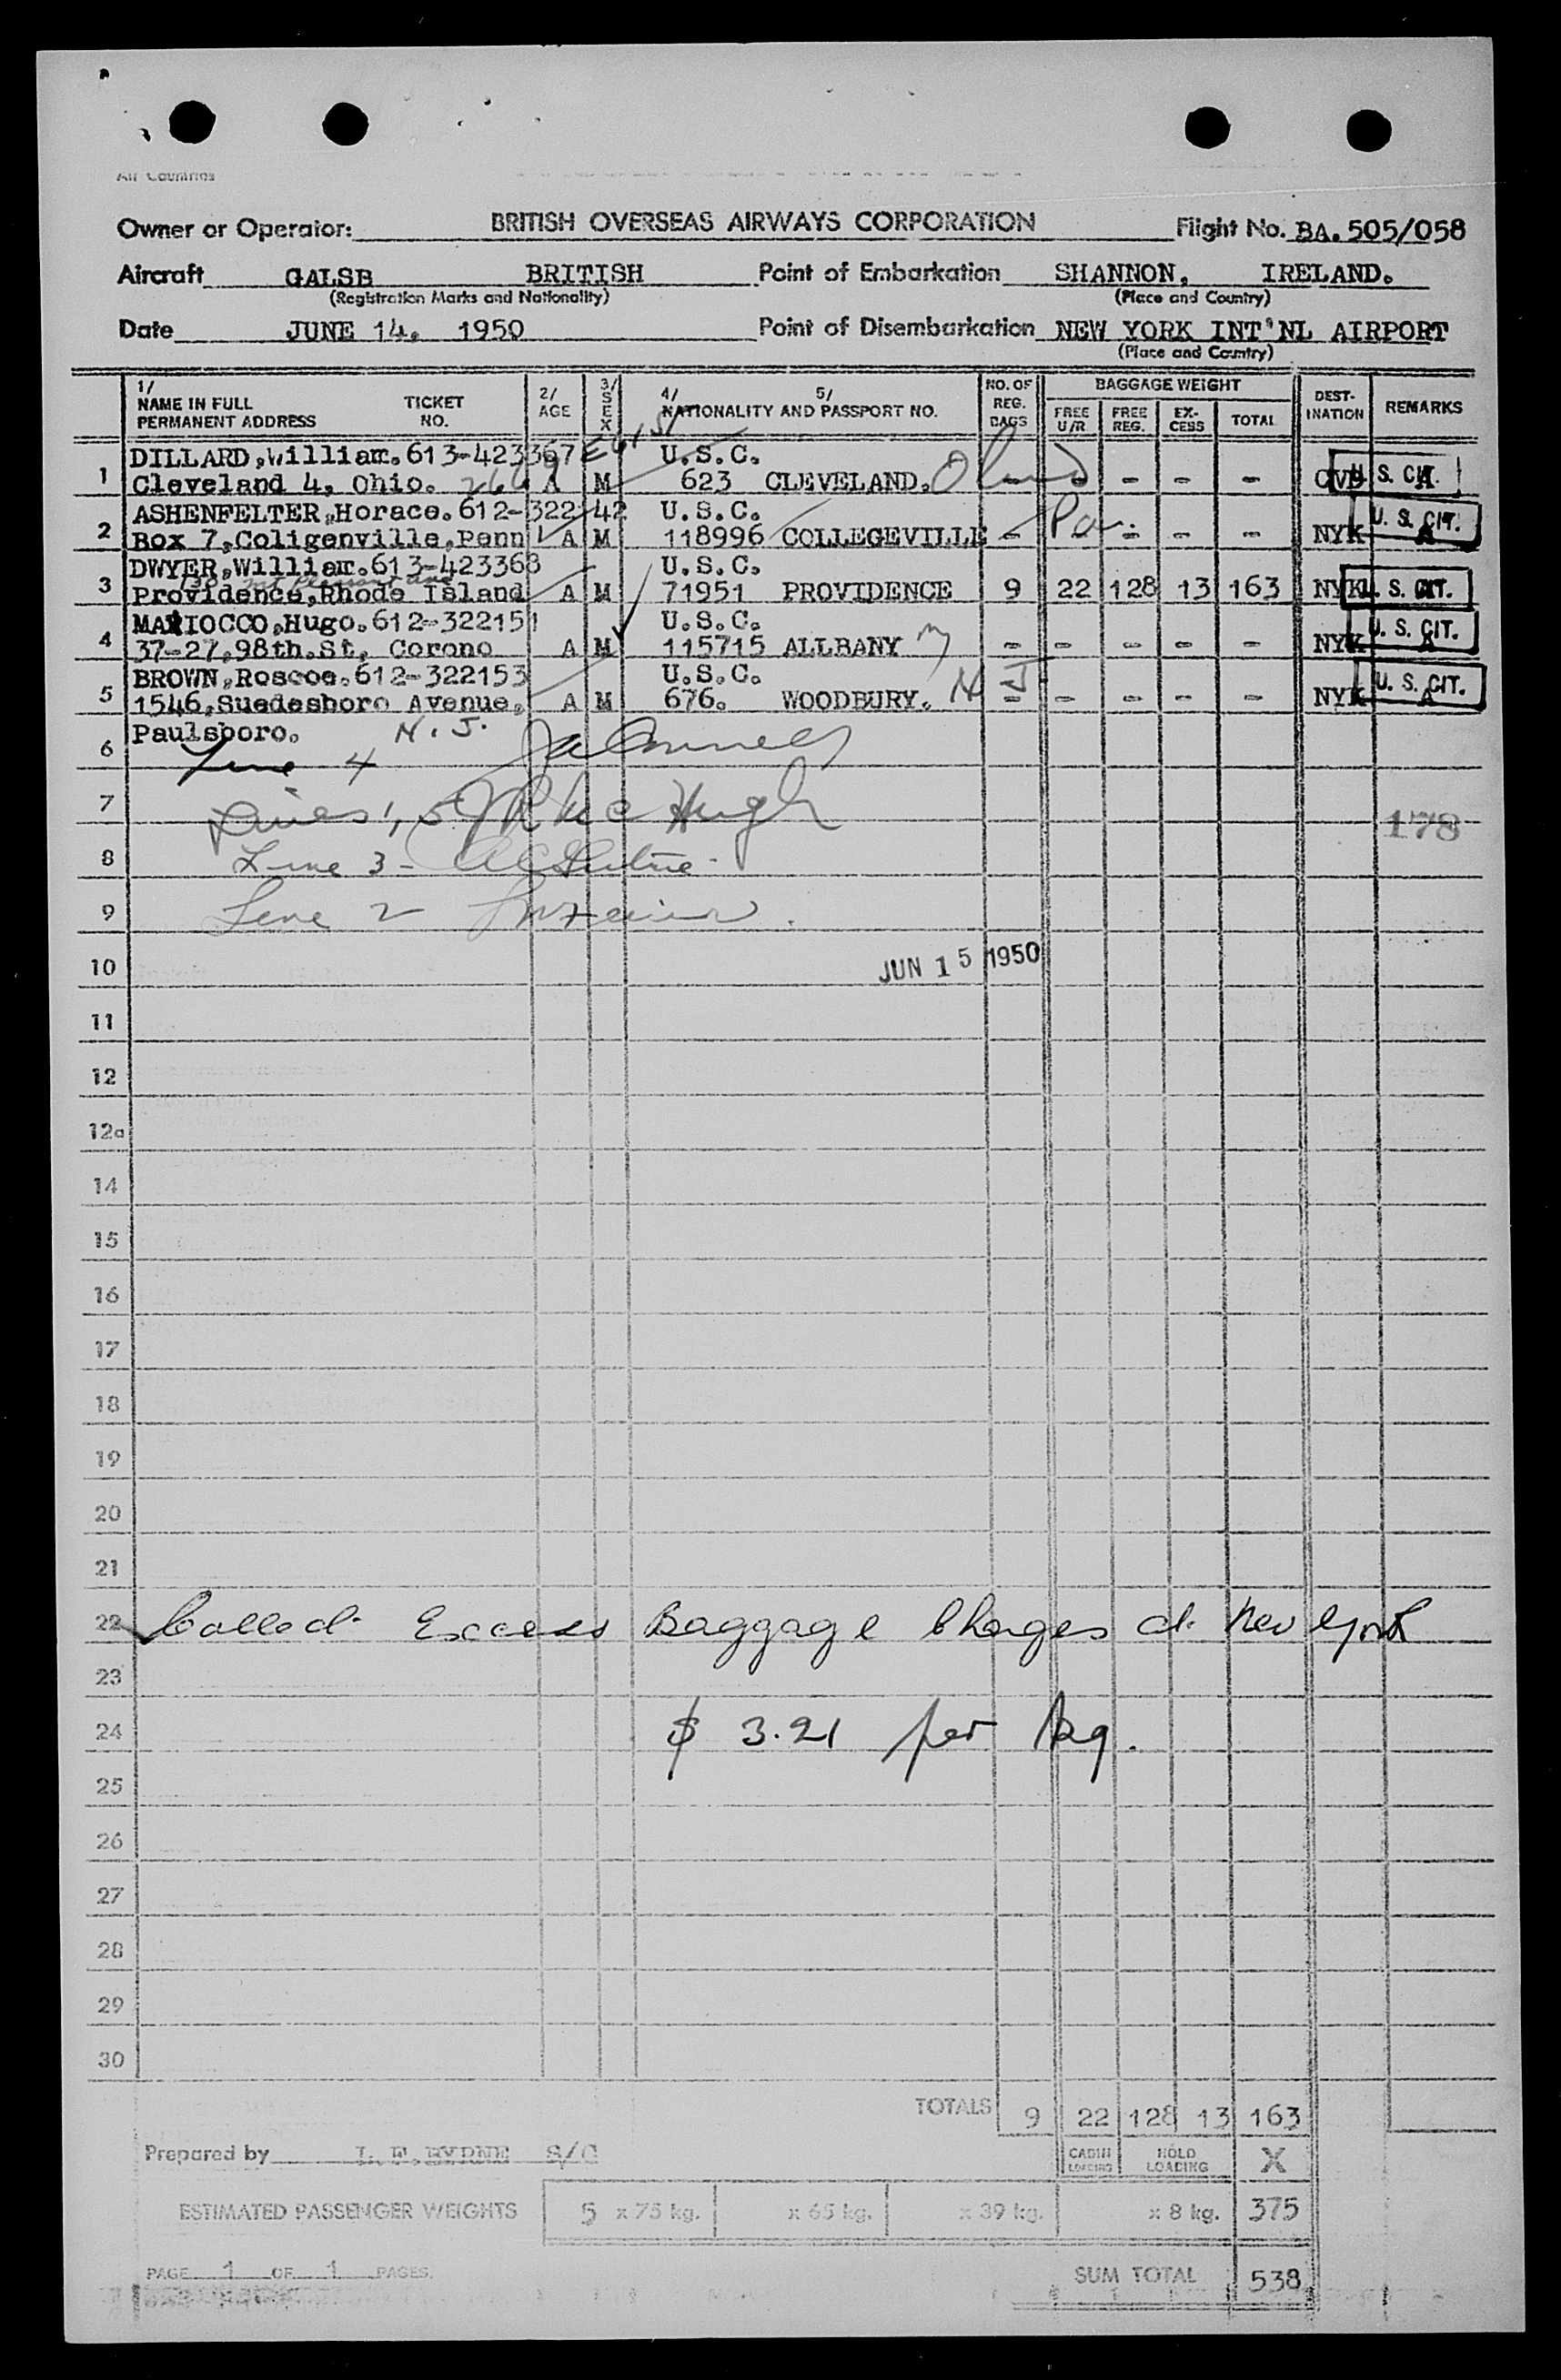 All Countries
Owner or Operator: BRITISH OVERSEAS AIRWAYS CORPORATION Flight No. BA. 505/058
Aircraft GALSB BRITISH Point of Embarkation SHANNON, IRELAND.
(Registration Marks and Nationality) (Place and Country)
Date JUNE 14, 1950 Point of Disembarkation NEW YORK INT'NL AIRPORT
(Place and Country)
1/ NAME IN FULL PERMANENT ADDRESS TICKET NO. 2/ AGE 3/ SEX 4/ 5/ NATIONALITY AND PASSPORT NO. NO. OF REG. BAGS BAGGAGE WEIGHT FREE U/R FREE REG. EX-CESS TOTAL DEST-INATION REMARKS
DILLARD, William. 613-423367 U.S.C.
1 Cleveland 4, Ohio. A M 623 CLEVELAND. - - - CVD U. S. CIT.
ASHENFELTER, Horace. 612-322142 U.S.C.
2 Box 7, Coligenville, Penn A M 118996 COLLEGEVILLE Pa. - - - - NYK U. S. CIT.
DWYER, William. 613-423368 U.S.C.
Mt Pleasant ave
3 Providence, Rhode Island A M 71951 PROVIDENCE 9 22 128 13 163 NYK U. S. CIT.
MAIOCCO, Hugo. 612-322151 U.S.C.
4 37-27, 98th. St, Corono A M 115715 ALLBANY NY - - - - - NYK U. S. CIT.
BROWN, Roscoe. 612-322153 U.S.C.
5 1546, Suedesboro Avenue, A M 676. WOODBURY. N J - - - - - NYK U. S. CIT.
6 Paulsboro. N. J.
Line 4
7 Lines 1, 5 McHugh 178
8 Line 3 -
9 Line 2
10 JUN 15 1950
11
12
12a
14
15
16
17
18
19
20
21
22 Collect Excess Baggage Charges at New York
23
24 $ 3.21 per kg.
25
26
27
28
29
30
TOTALS 9 22 128 13 163
Prepared by L. F. BYRNE S/C CABIN LOADING HOLD LOADING X
ESTIMATED PASSENGER WEIGHTS 5 x 75 kg. x 65 kg. x 39 kg. x 8 kg. 375
PAGE 1 OF 1 PAGES. SUM TOTAL 538